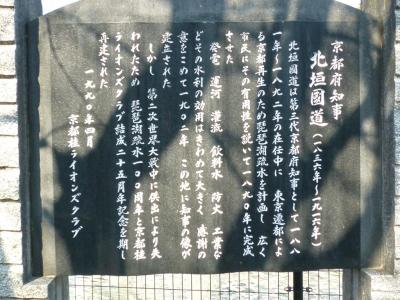 京都府知事
北垣國道(一八三六年〜一九一六年)
北垣国道は第三代京都府知事として一八八
一年〜一八九二年の在任中に 東京遷都によ
る京都再生のため琵琶湖疏水を計画し 広く
市民にその有用性を説いて一八九〇年に完成
させた
発電 運河 灌漑 飲料水 防火 工業な
どその水利の効用はきわめて大きく 感謝の
意をこめて一九〇二年 この地に知事の像が
建立された
しかし 第二次世界大戦中に供出により失
われたため 琵琶湖疏水一〇〇周年と京都桂
ライオンズクラブ結成二十五周年記念を期し
再建された
一九九〇年四月
京都桂ライオンズクラブ